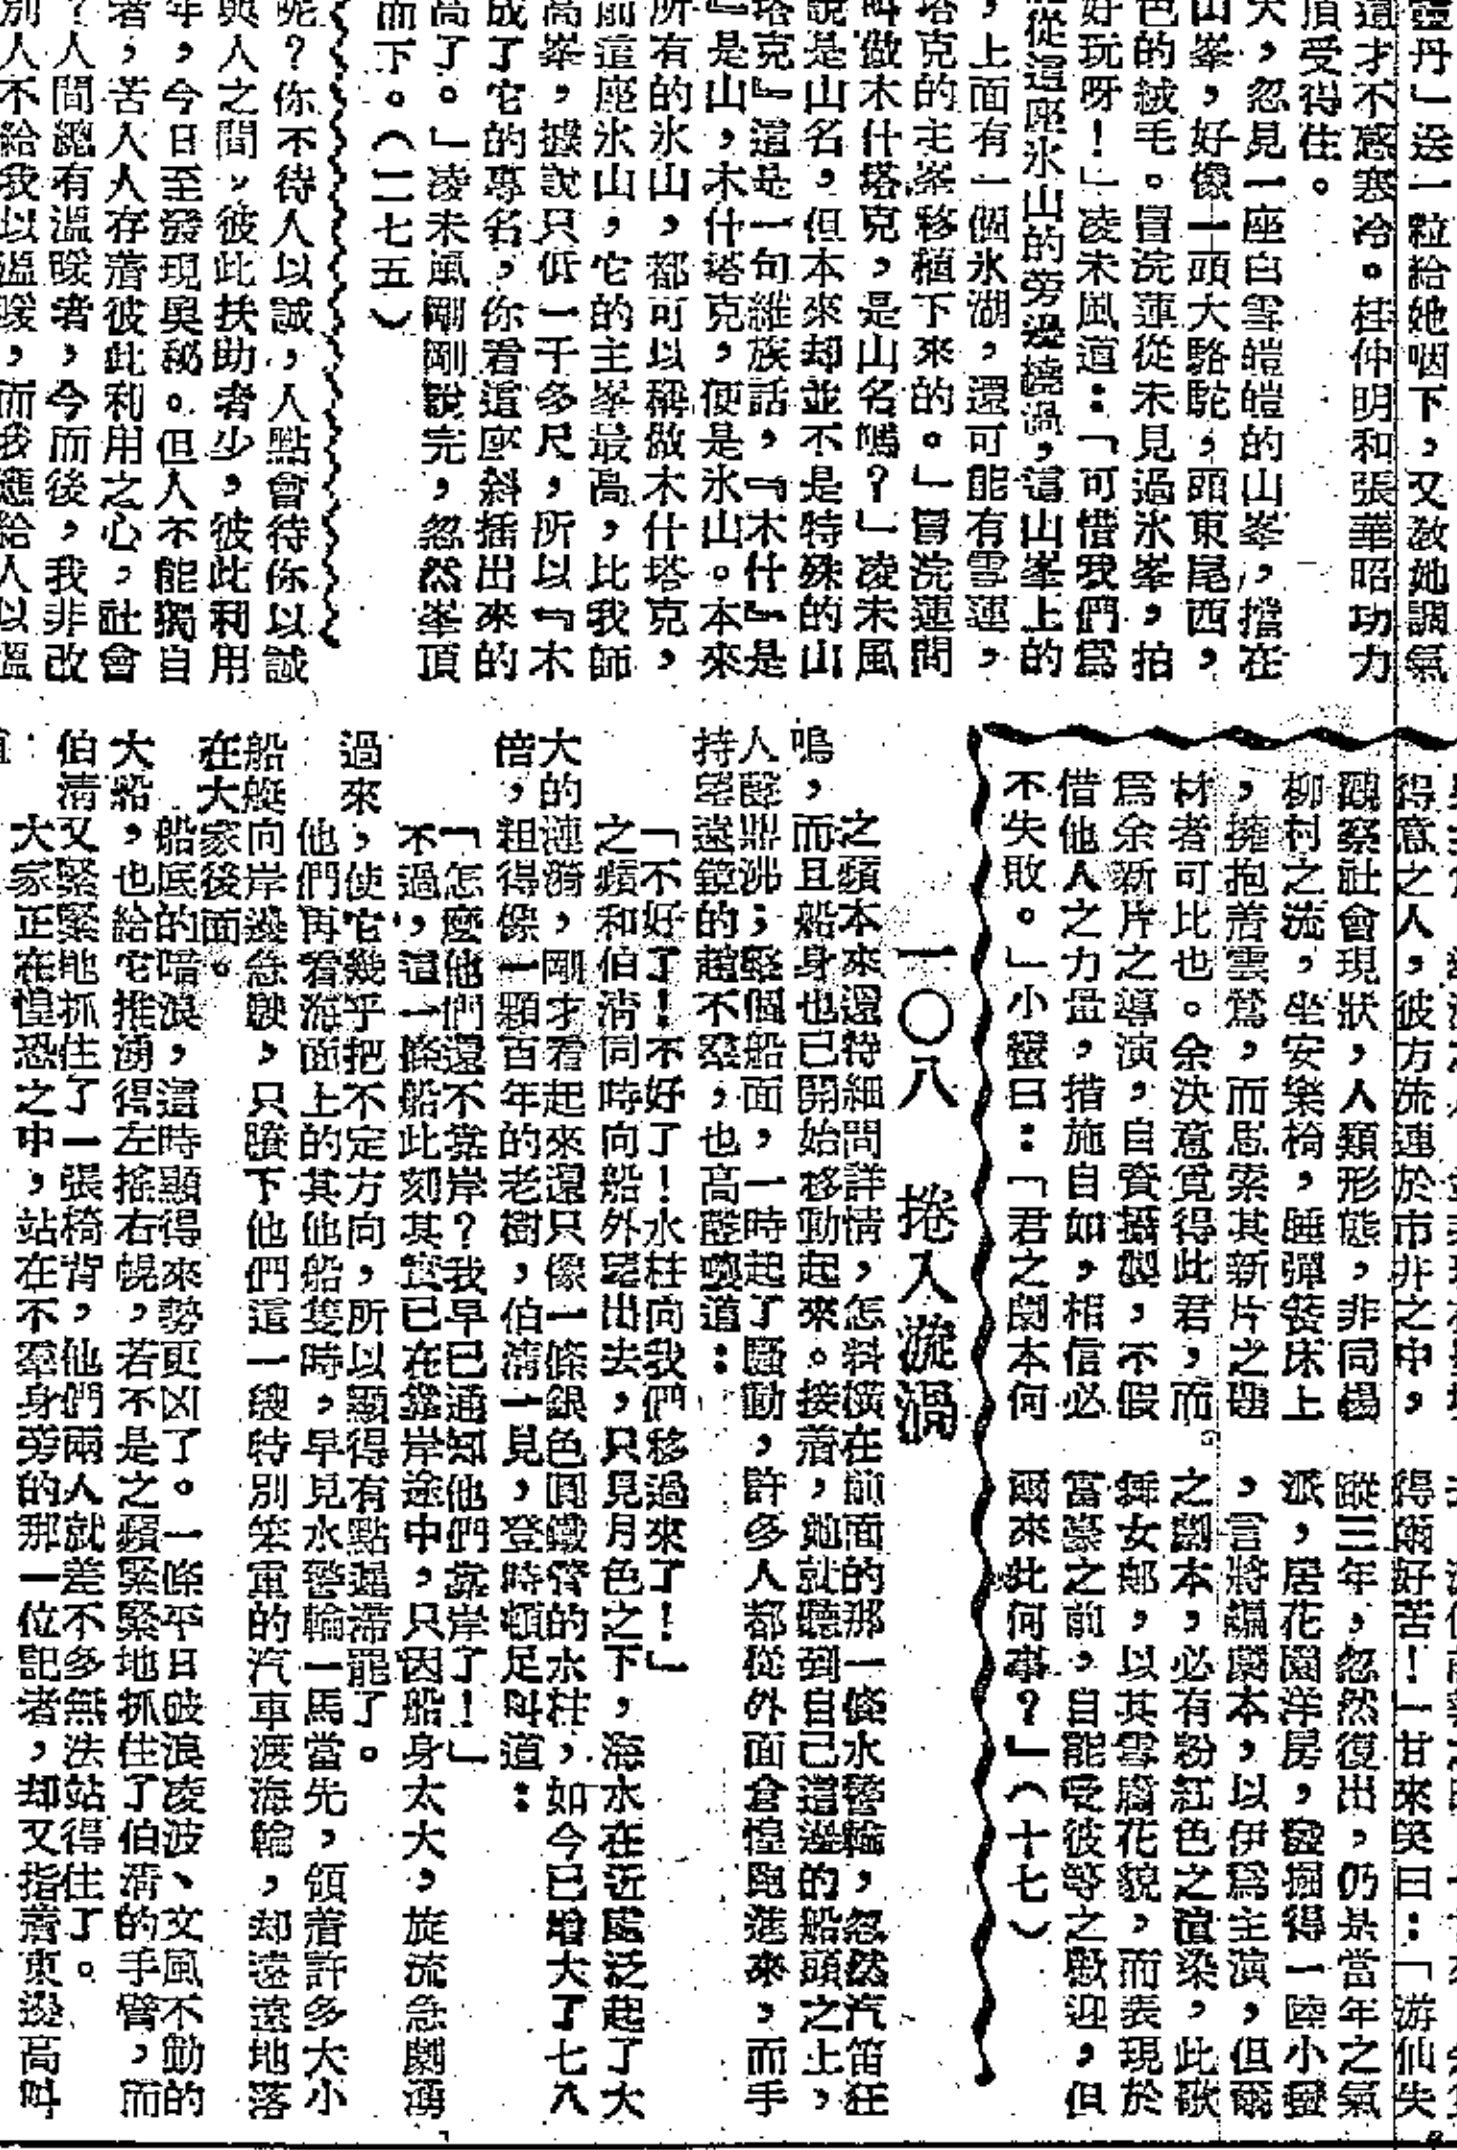 靈丹」送一粒給她咽下,又敎她調氣
這才不感寒冷。桂仲明和張華昭功力
頂受得住。
天,忽見一座白雪皚皚的山峯,擋在
山峯,好像一頭大駱駝,頭東尾西,
色的絨毛。冒浣蓮從未見過氷峯,拍
好玩呀!」凌未風道:「可惜我們爲
從這座氷山的旁邊繞過,這山峯上的
,上面有一個氷湖,還可能有雪蓮,
塔克的主峯移植下來的。」冒浣蓮問
叫做木什塔克,是山名嗎?」凌未風
說是山名,但本來却並不是特殊的山
塔克』這是一句維族話,『木什』是
『是山,木什塔克,便是氷山。本來
所有的氷山,都可以稱做木什塔克,
前這座氷山,它的主峯最高,比我師
高峯,據說只低一千多尺,所以『木
成了它的專名,你看這座斜插出來的
高了。」凌未風剛剛說完,忽然峯頂
而下。(二七五)
呢?你不待人以誠,人點會待你以誠
與人之間,彼此扶助者少,彼此利用
年,今日至發現奧秘。但人不能獨自
者,苦人人存著彼此利用之心,社會
?人間總有溫暖者,今而後,我非改
別人不給我以溫暖,而我應給人以溫
得意之人,彼方流連於市井之中,
觀察社會現狀,人類形態,非同楊
柳村之流,坐安樂椅,睡彈簧床上
,擁抱着雲鶯,而思索其新片之題
材者可比也。余決意覓得此君,而
爲余新片之導演,自資攝製,不假
借他人之力量,措施自如,相信必
不失敗。」小蠻曰:「君之劇本何
得爾好苦!」甘來笑曰:「游仙失
蹤三年,忽然復出,仍是當年之氣
派,居花園洋房,發掘得一陸小蠻
,言將編劇本,以伊爲主演,但爾
之劇本,必有粉紅色之渲染,此歌
舞女郎,以其雪膚花貌,而表現於
富豪之前,自能受彼等之歡迎,但
爾來此何事?」(十七)
一〇八 捲入漩渦
之蘋本來還特細問詳情,怎料橫在前面的那一條水警輪,忽然汽笛狂
鳴,而且船身也已開始移動起來。接着,她就聽到自己這邊的船頭之上,
人聲鼎沸;整個船面,一時起了騷動,許多人都從外面倉惶跑進來,而手
持望遠鏡的趙不羣,也高聲嚷道:
「不好了!不好了!水柱向我們移過來了!」
之蘋和伯淸同時向船外望出去,只見月色之下,海水在近處泛起了大
大的漣漪,剛才看起來還只像一條銀色圓鐵管的水柱,如今已增大了七八
倍,粗得像一顆百年的老樹,伯淸一見,登時頓足叫道:
「怎麼他們還不靠岸?我早已通知他們靠岸了!」
不過,這一條船此刻其實已在靠岸途中,只因船身太大,旋流急劇湧
過來,使它幾乎把不定方向,所以顯得有點遲滯罷了。
他們再看海面上的其他船隻時,早見水警輪一馬當先,領着許多大小
船艇向岸邊急駛,只賸下他們這一艘特別笨重的汽車渡海輪,却遠遠地落
在大家後面。
船底的暗浪,這時顯得來勢更凶了。一條平日破浪凌波、文風不動的
大船,也給它推湧得左搖右幌,若不是之蘋緊緊地抓住了伯淸的手臂,而
伯淸又緊緊地抓住了一張椅背,他們兩人就差不多無法站得住了。
大家正在惶恐之中,站在不羣身旁的那一位記者,却又指着東邊高叫